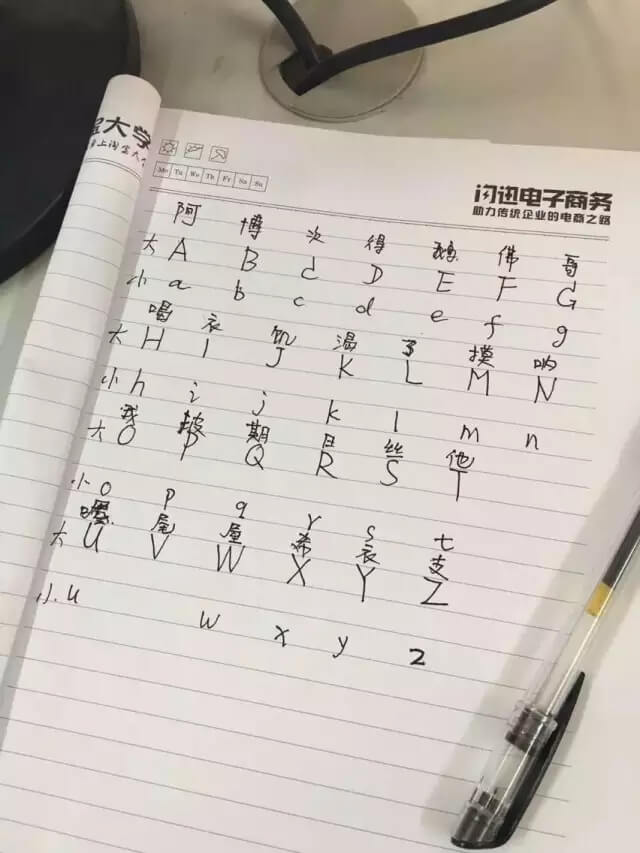 大学
上淘宝大
Mo Tu We Th Fr Sa Su
闪迅电子商务
助力传统企业的电商之路
阿 博 次 得 鹅 佛 哥
大 A B d D E F G
小 a b c d e f g
喝 衣 饥 渴 了 摸 呐
大 H I J K L M N
小 h i j k l m n
我 披 期 日 丝 他
大 O P Q R S T
小 o p q r s t
尾 屋 希 衣 支
大 U V W X Y Z
小 u w x y z